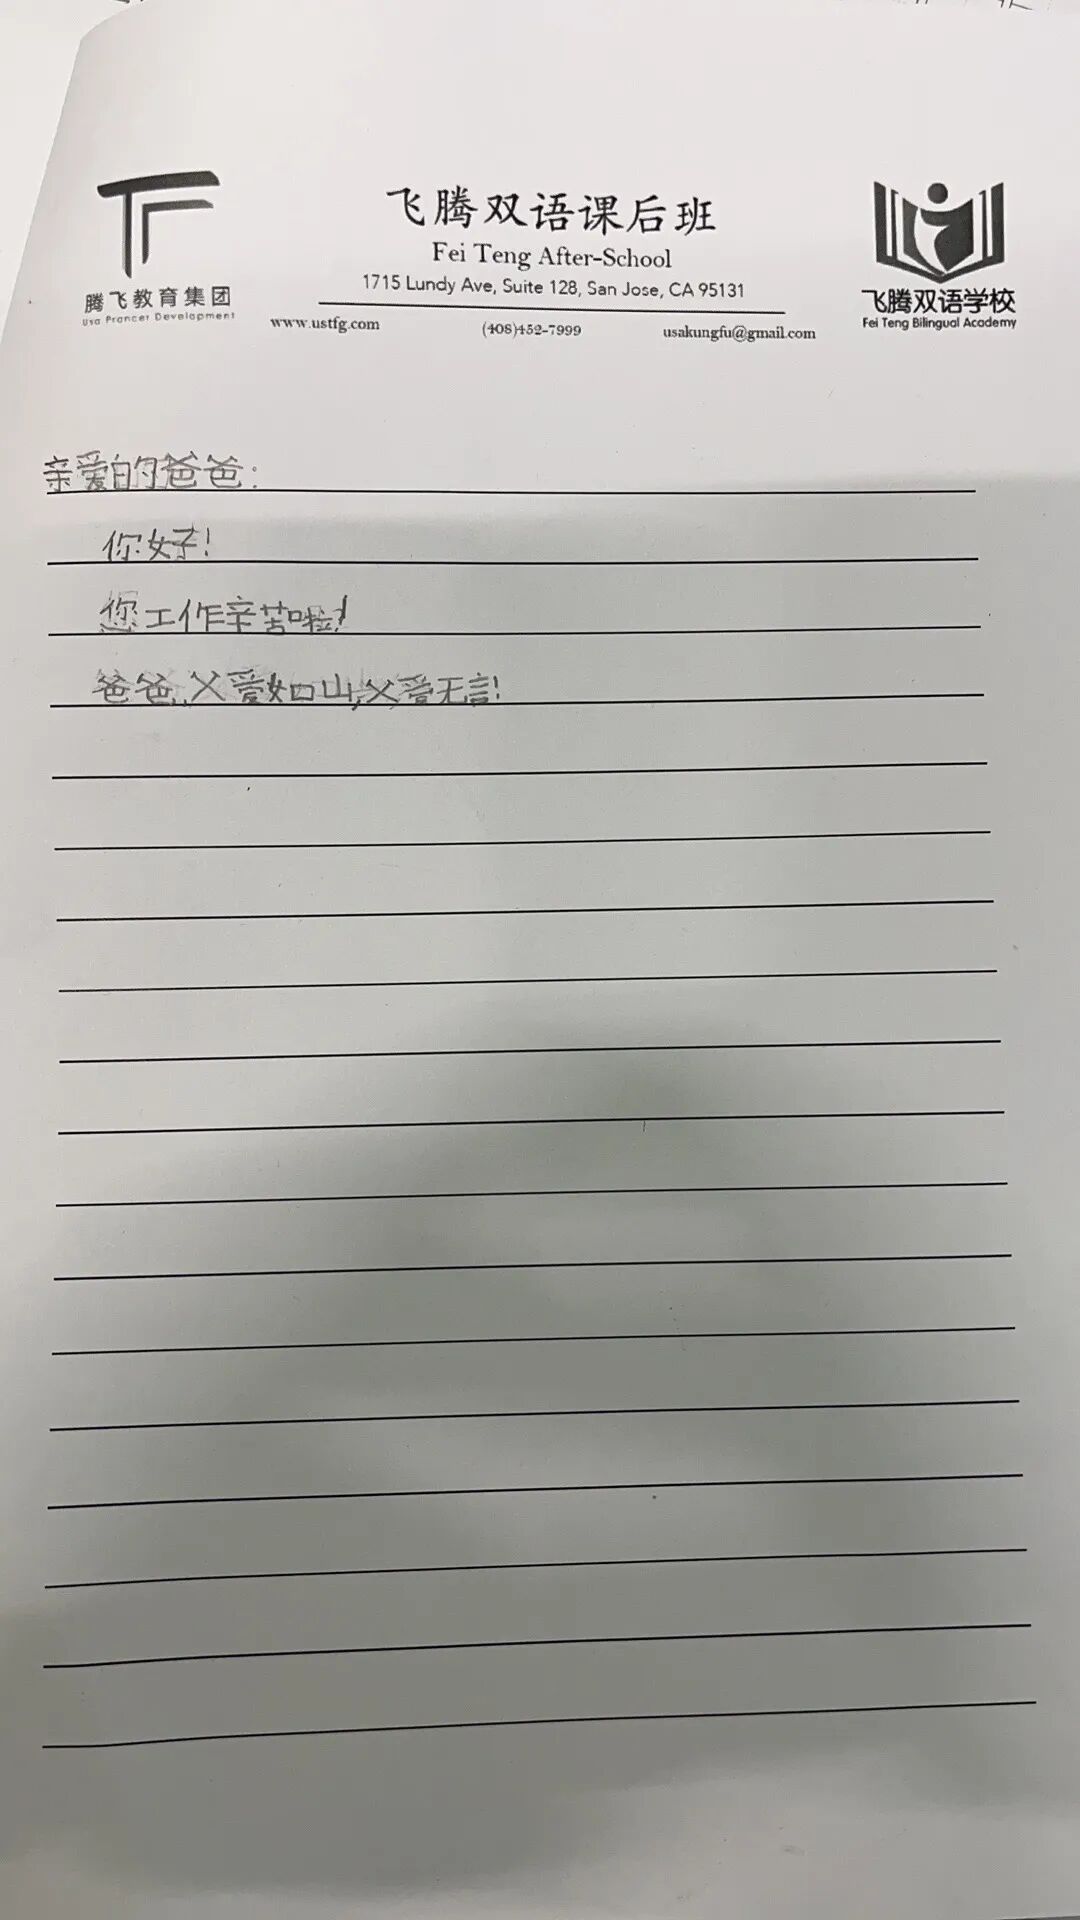 飞腾双语课后班
Fei Teng After-School
1715 Lundy Ave, Suite 128, San Jose, CA 95131
腾飞教育集团
Usa Prancer Development
www.ustfg.com
(408)452-7999
usakungfu@gmail.com
飞腾双语学校
Fei Teng Bilingual Academy
亲爱的爸爸:
你好!
您工作辛苦啦!
爸爸,父爱如山,父爱无言!